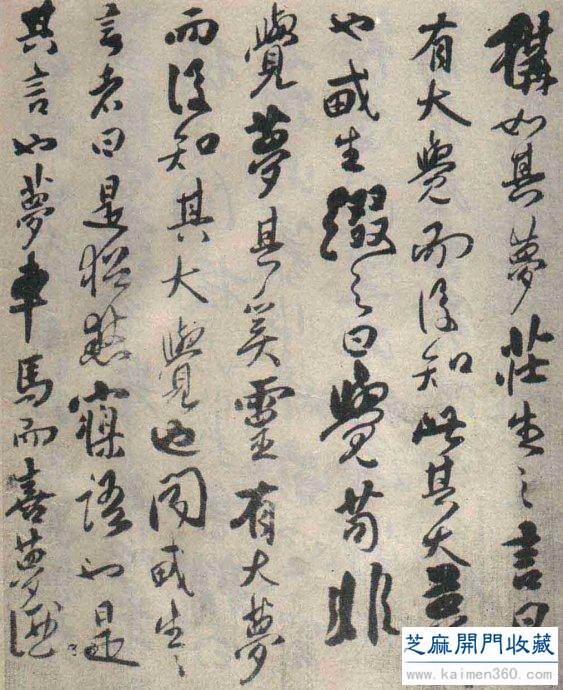 構如其夢莊生之言曰
有大覺而後知此其大
也生綴之曰覺苟非
覺夢其奚靈有大夢
而後知其大覺也生之
言者曰是猶語也是
其言也夢車馬而喜夢
芝麻開門收藏
www.kaimen360.com